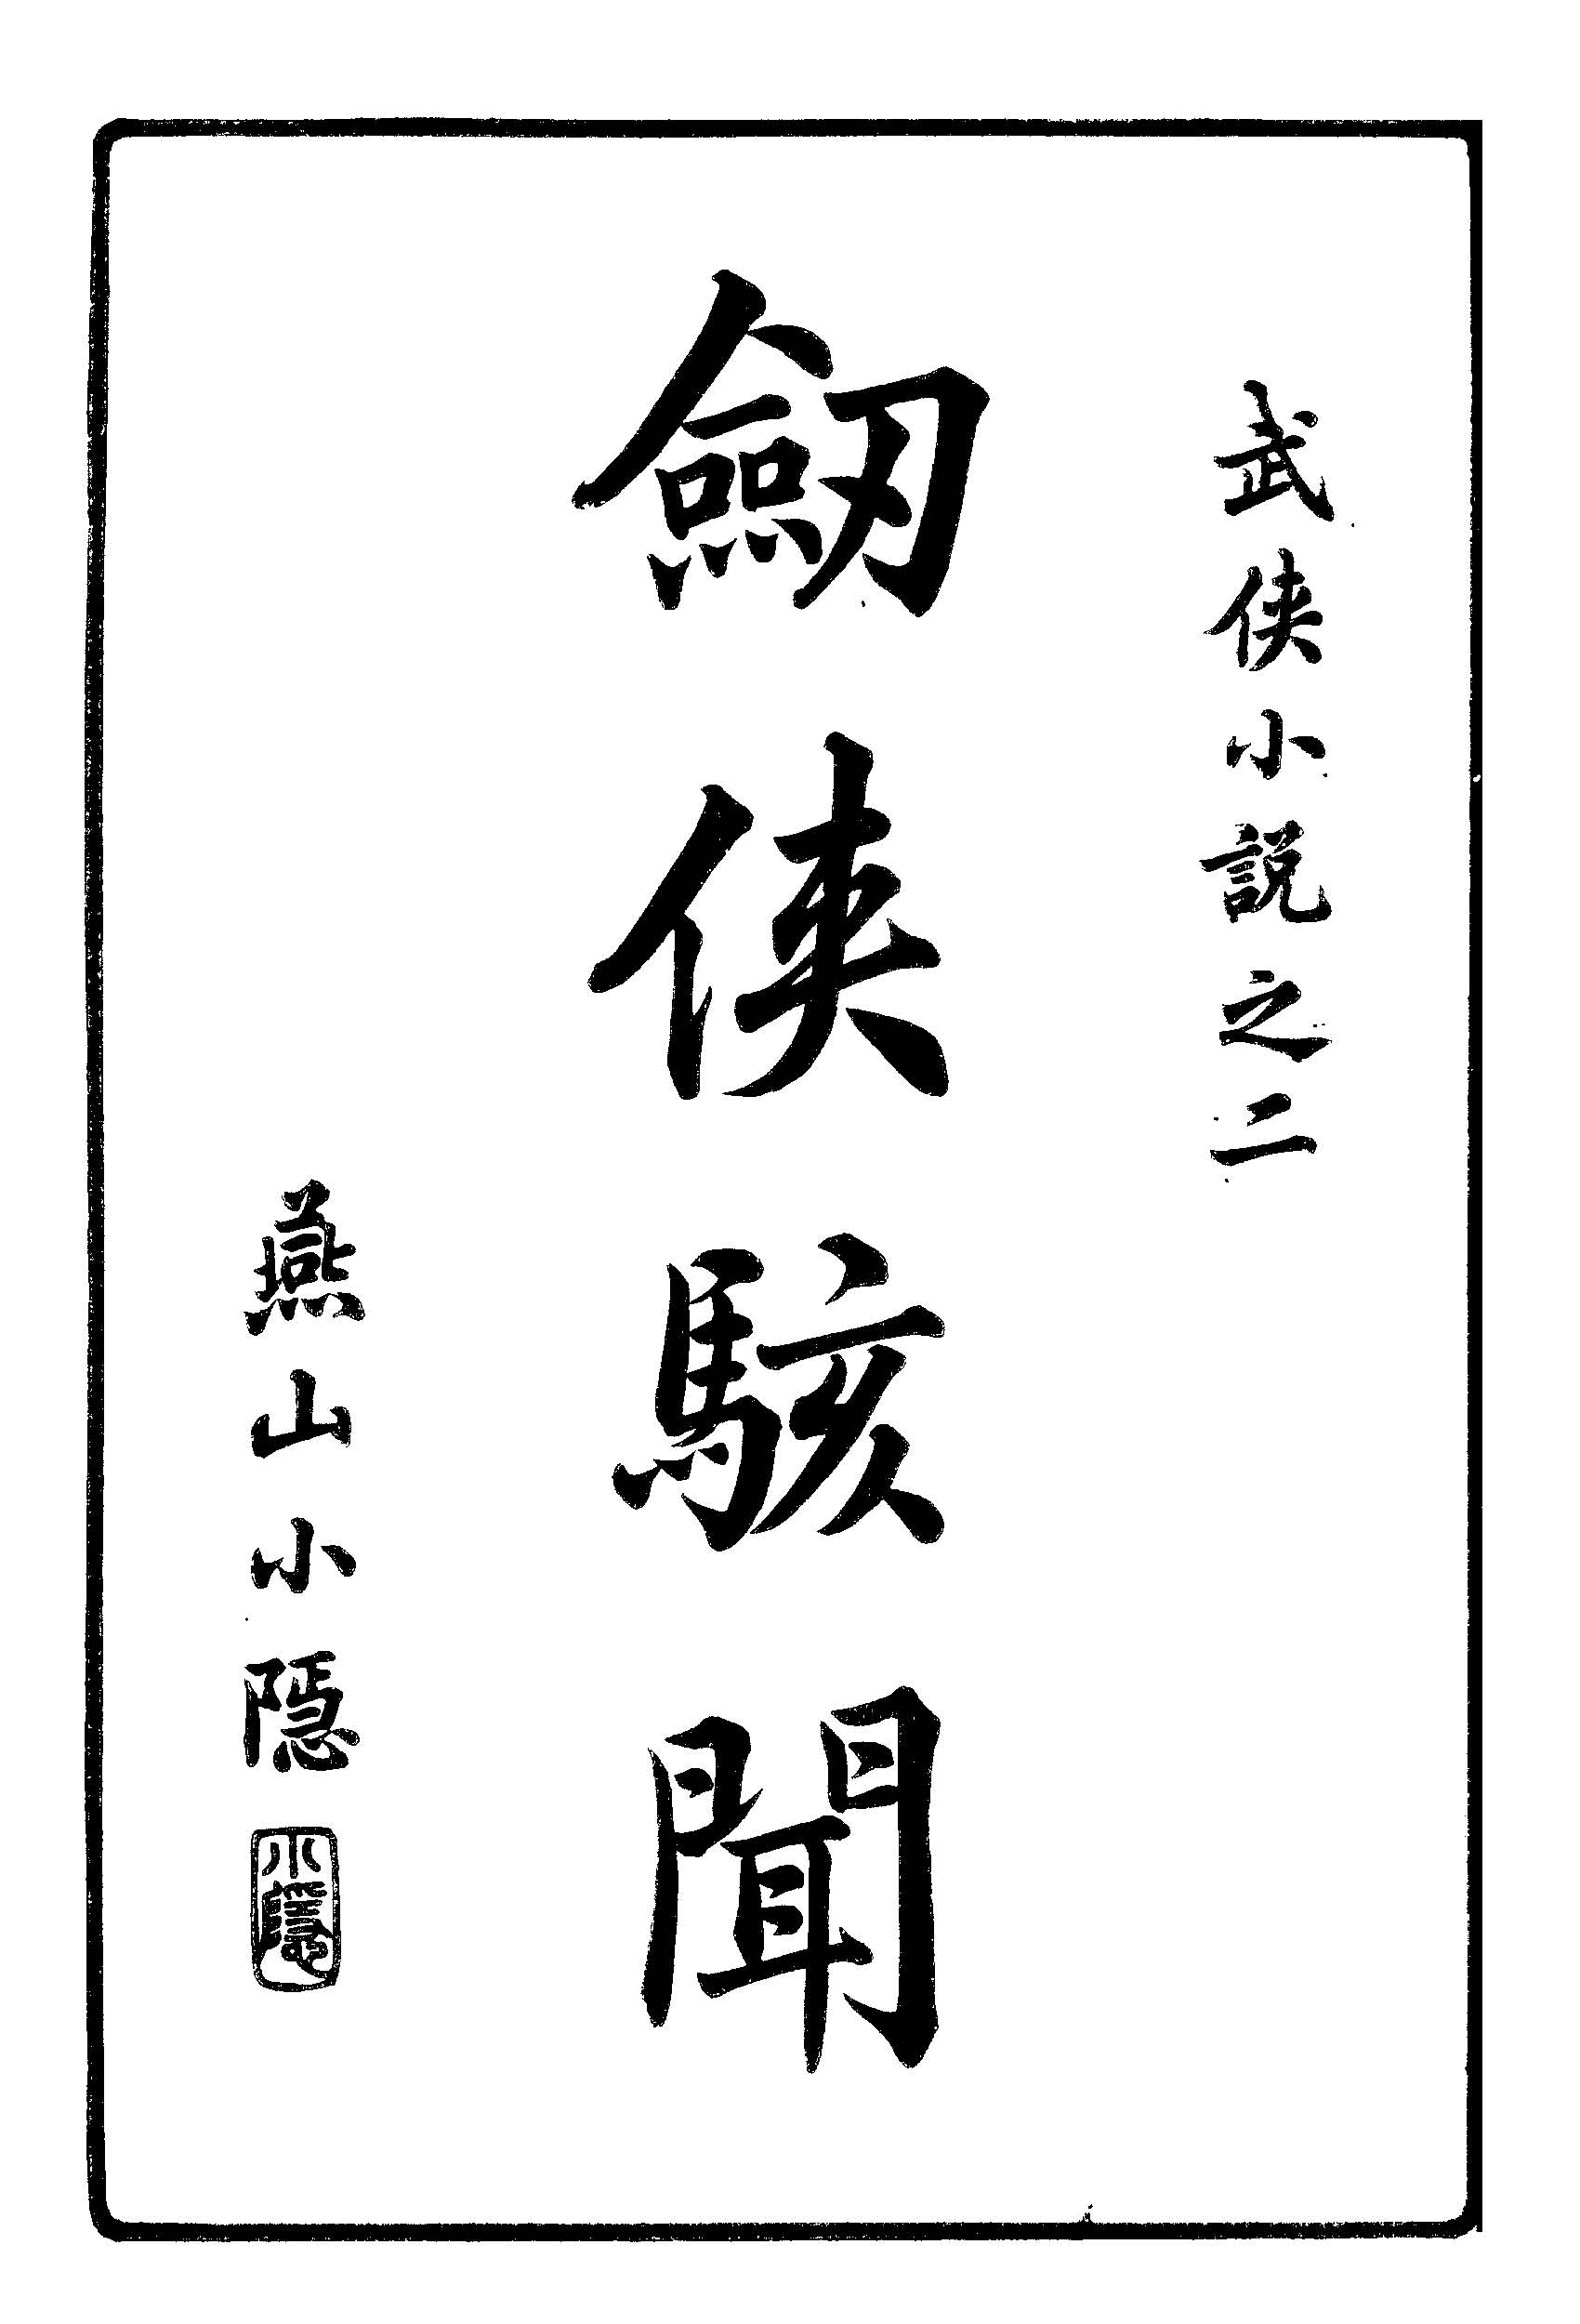 武俠小說之二
劒俠駭聞
燕山小隱
小隱